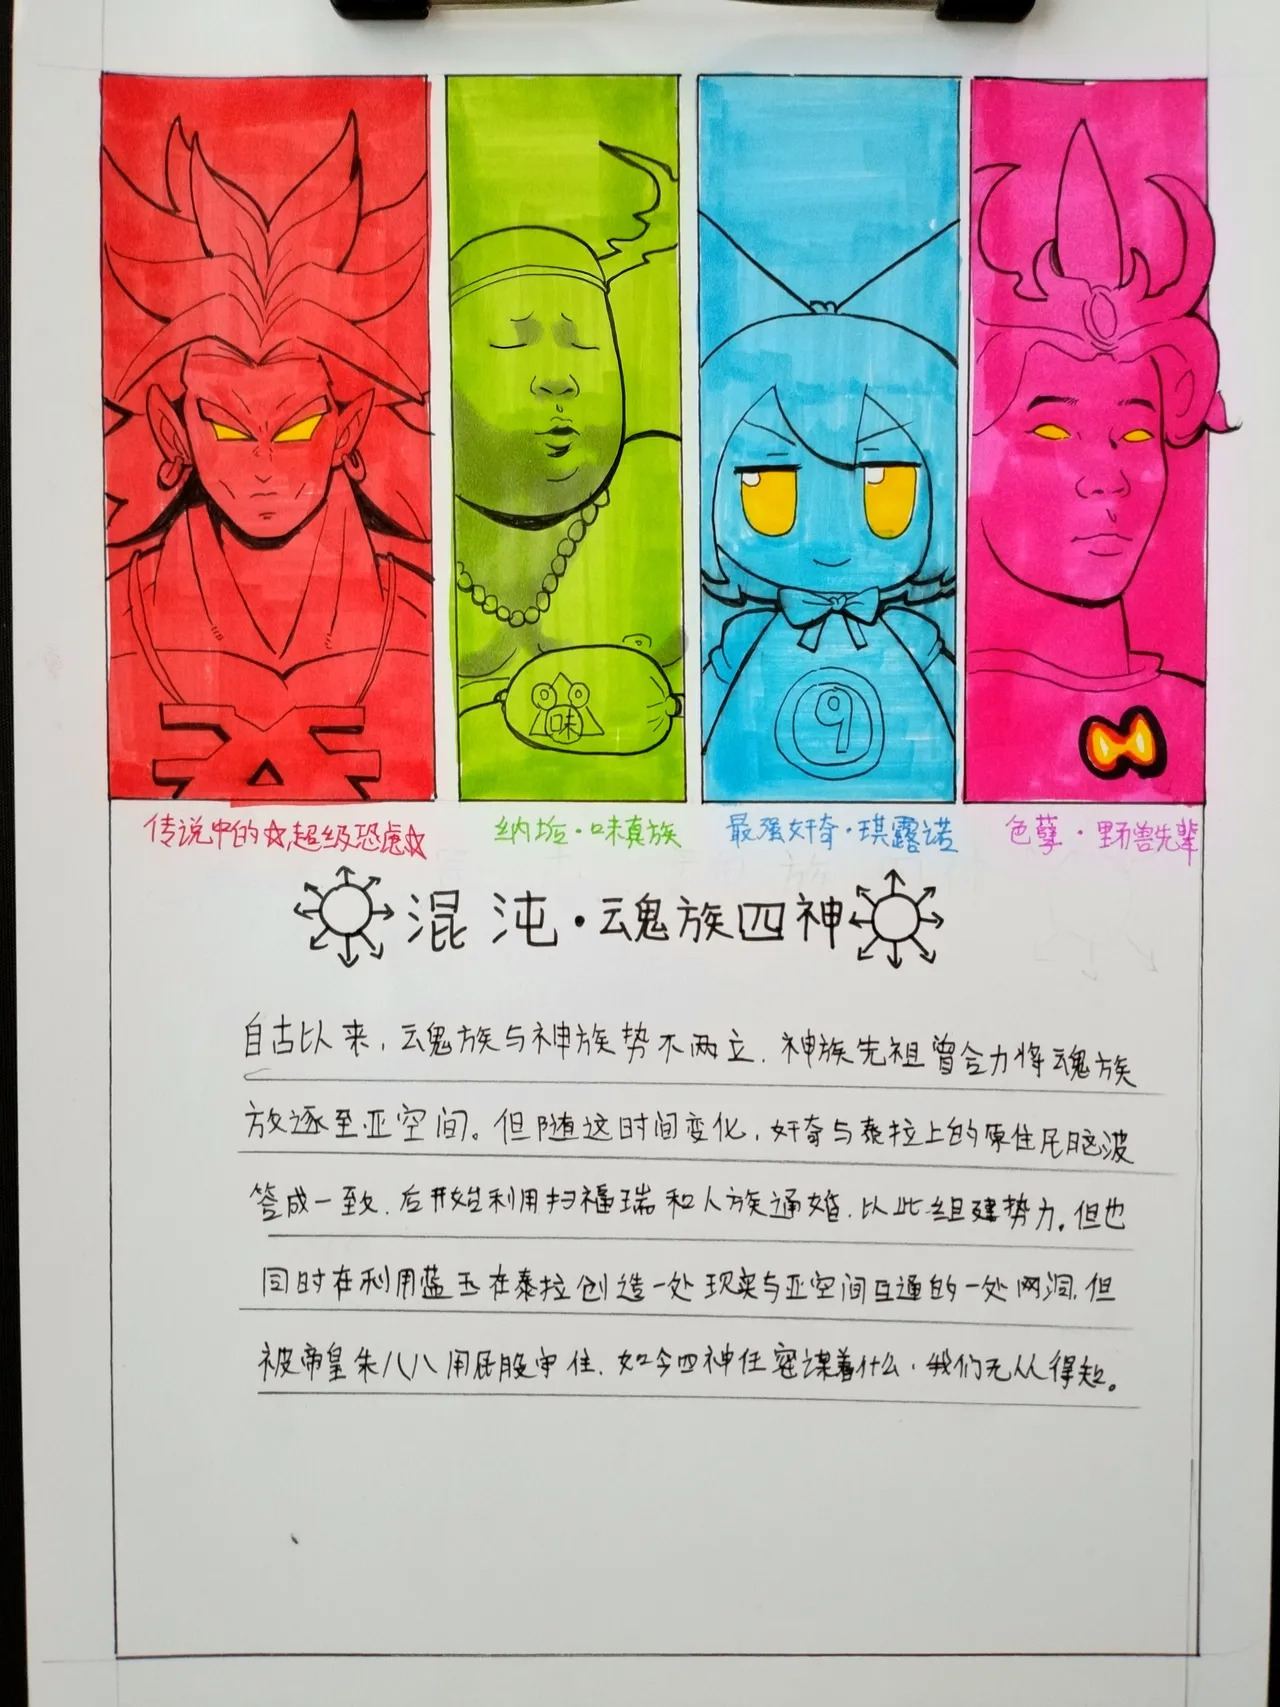 味
9
传说中的☆超级恐虐☆
纳垢·味真族
最强奸奇·琪露诺
色孽·野兽先辈
混沌·魂族四神
自古以来,魂族与神族势不两立.神族先祖曾合力将魂族
放逐至亚空间。但随这时间变化,奸奇与泰拉上的原住民脑波
答成一致.后开始利用扫福瑞和人族通婚.以此组建势力。但也
同时在利用蓝玉在泰拉创造一处现实与亚空间互通的一处网洞.但
被帝皇朱八八用屁股守住.如今四神在密谋着什么,我们无从得知。